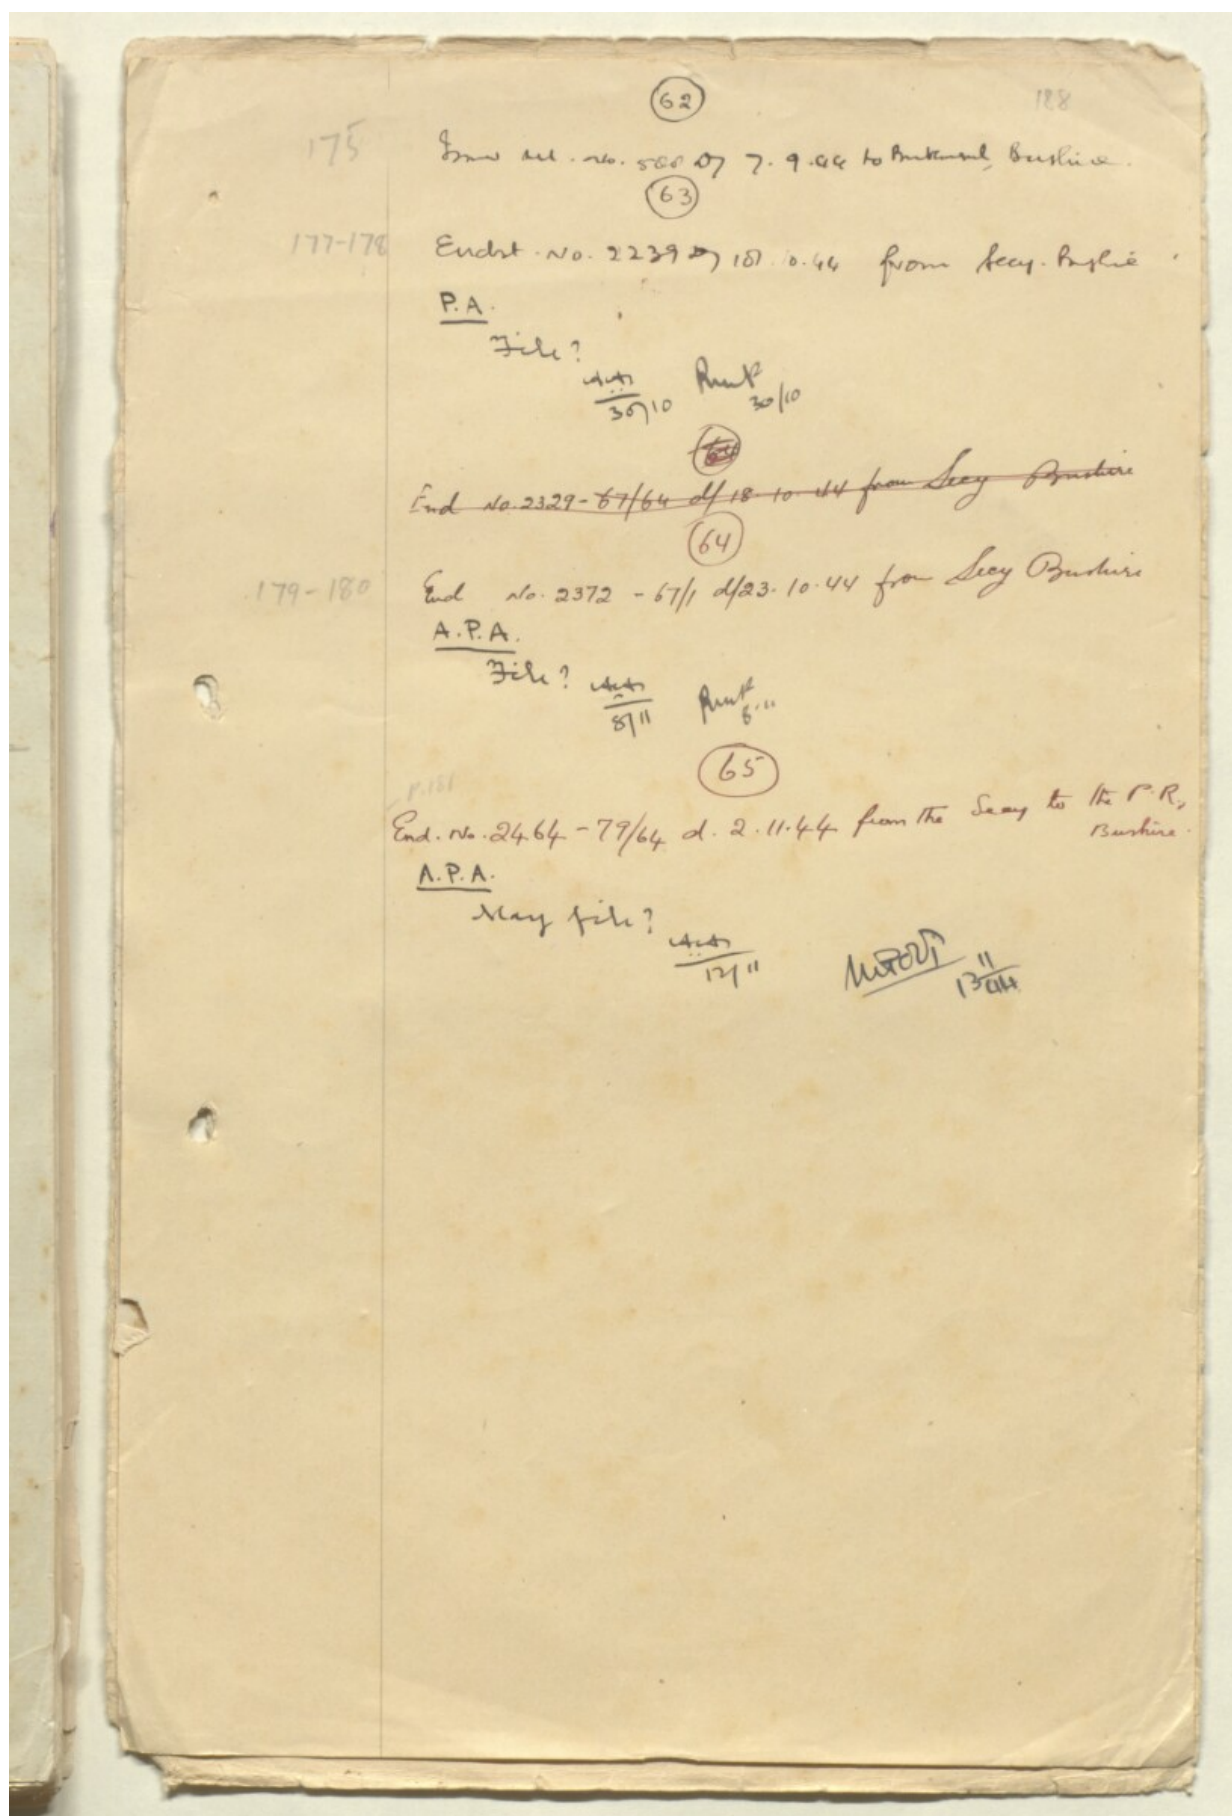 62
188
175
Issued tel. No. D/ 7.9.44 to Britconsul, Bushire.
63
177-178
Endst. No. 2239 D/ 10.44 from Secy. Bushire
P.A.
File?
30/10 30/10
64
End No. 2329-67/64 d/ 18.10.44 from Secy Bushire
64
179-180
End No. 2372 - 67/1 d/23.10.44 from Secy Bushire
A.P.A.
File?
8/11 8.11
65
P.181
End. No. 2464-79/64 d. 2.11.44 from the Secy to the P.R.,
Bushire.
A.P.A.
May file?
12/11
13 11/44